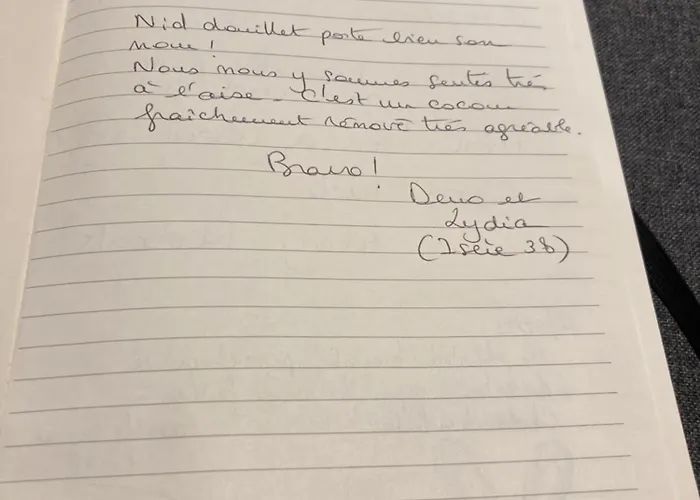 Nid douillet porte bien son
nom !
Nous nous y sommes sentis très
à l'aise. C'est un cocon
fraîchement rénové très agréable.
Bravo !
et
Lydia
(Isère 38)